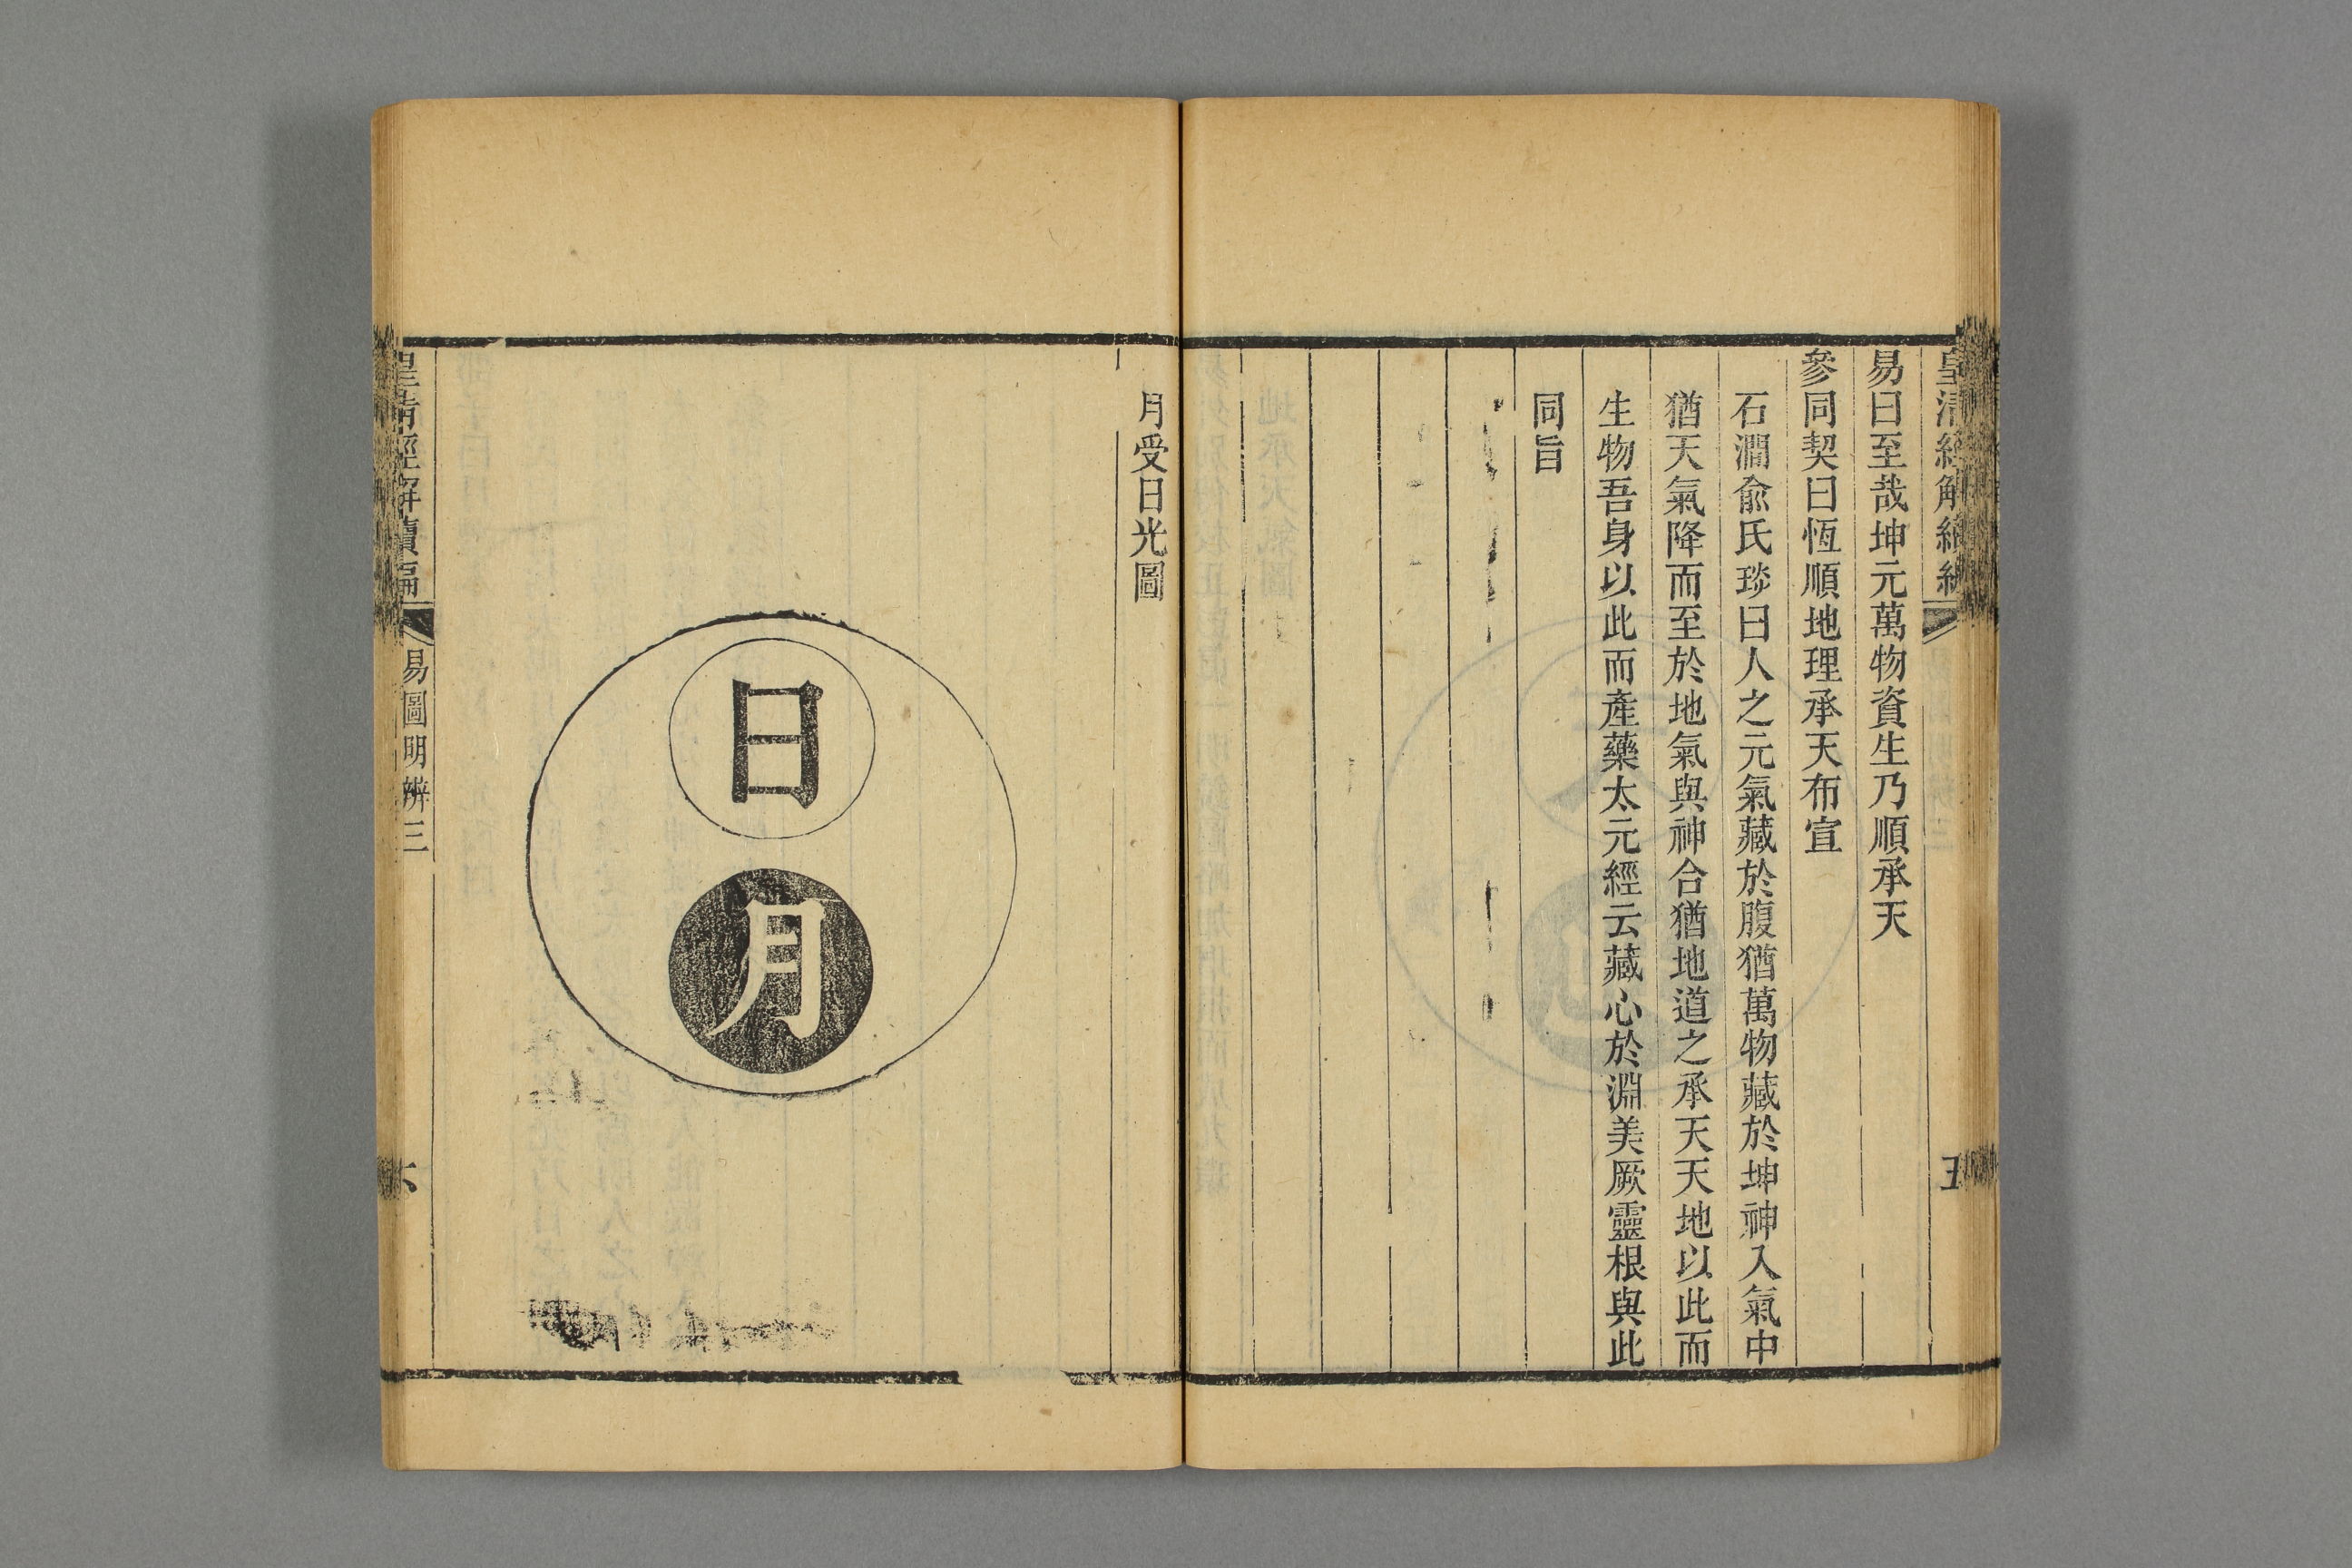 皇清經解續編
五
易曰至哉坤元萬物資生乃順承天
參同契曰恆順地理承天布宣
石澗俞氏琰曰人之元氣藏於腹猶萬物藏於坤神入氣中
猶天氣降而至於地氣與神合猶地道之承天天地以此而
生物吾身以此而產藥太元經云藏心於淵美厥靈根與此
同旨
月受日光圖
日
月
皇清經解續編
易圖明辨三
六